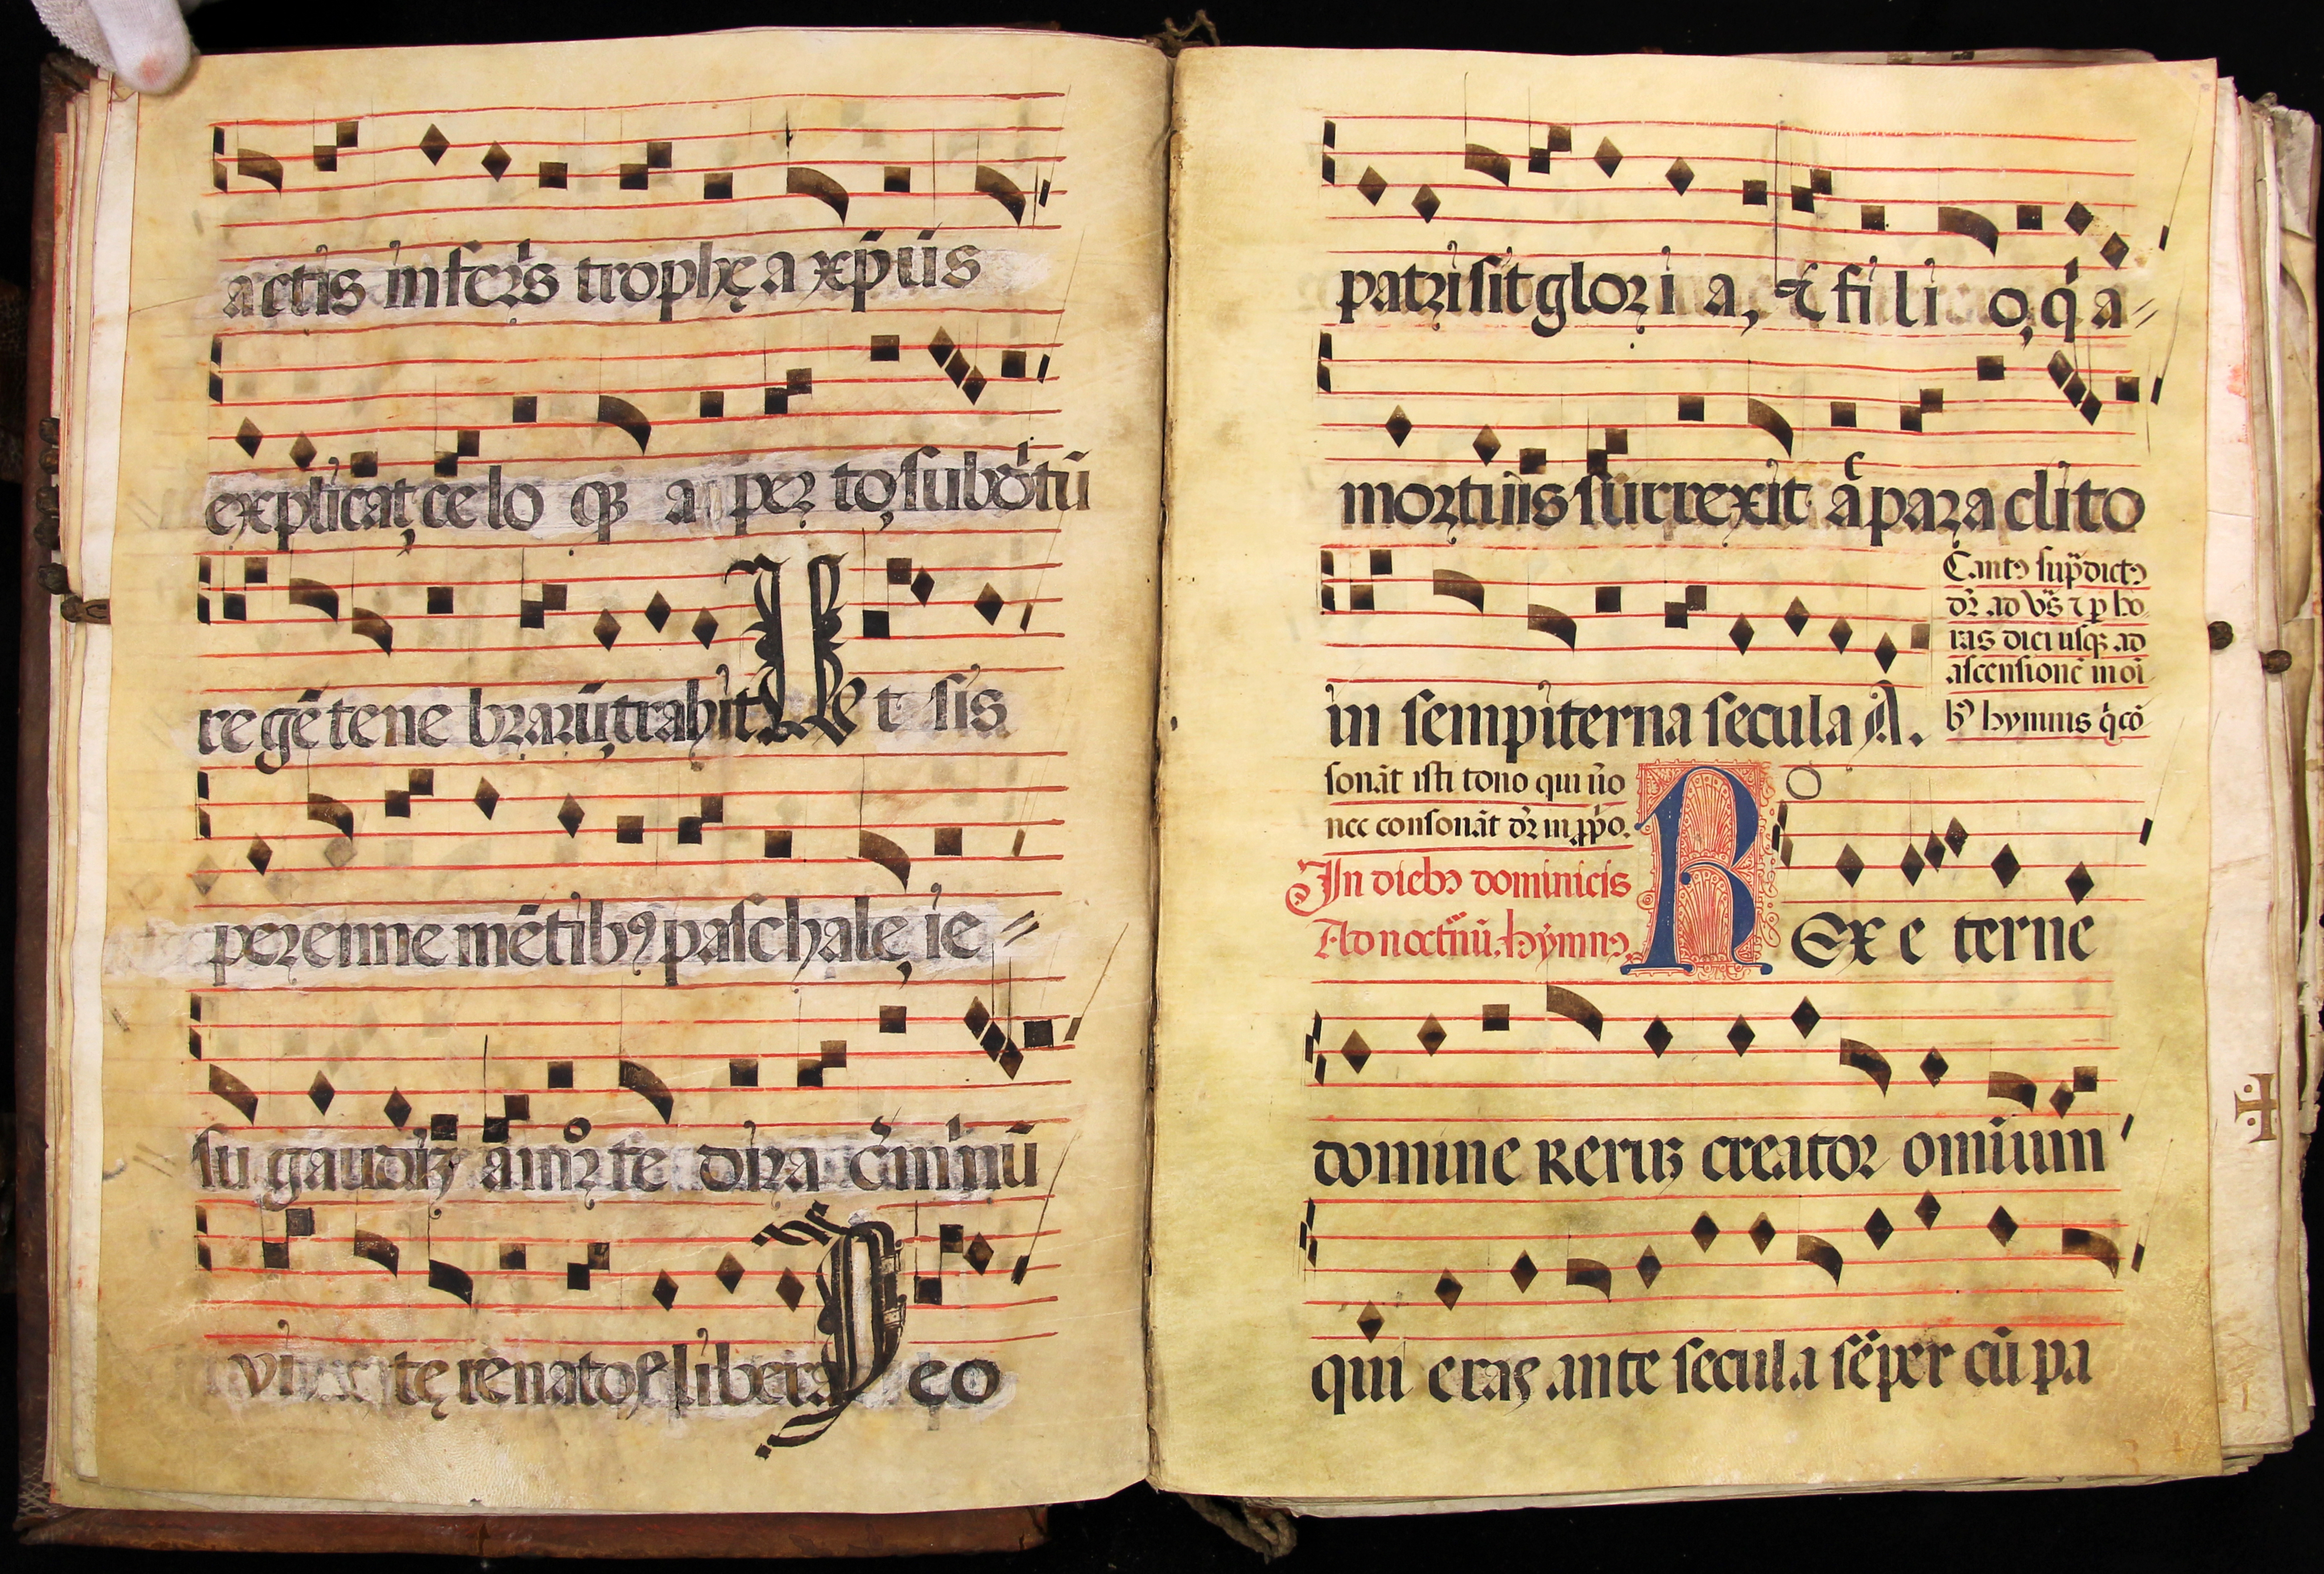 actis inferı̉s trophę a xp̄ūs
explicat, celo qꝫ a per to, subd̉tū
regē tene brarū, trahit Ut sis
perenne mētibꝰ paschale, ie⸗
su gaudiꝫ a morte dira c̉mı̉nū
vitę renatos libera Deo
patri sit glori a, ⁊ fi li o, q̉ a⸗
mortuis surrexit ac̄ para clito
in sempiterna secula A.
Cantꝰ sup̄dictꝰ
dr̄ ad vs̄ ⁊ ꝑ ho
ras diei usqꝫ ad
ascensionē in oı̄
bꝰ hymnis q̉ cō
sonāt isti tono qui ūo
nec consonāt dr̄ in ꝓp̉o.
In diebꝰ dominicis
Ad noctūū. hymnꝰ.
REx e terne
domine Reruꝫ creator omium
qui eras ante secula sēper cū pa